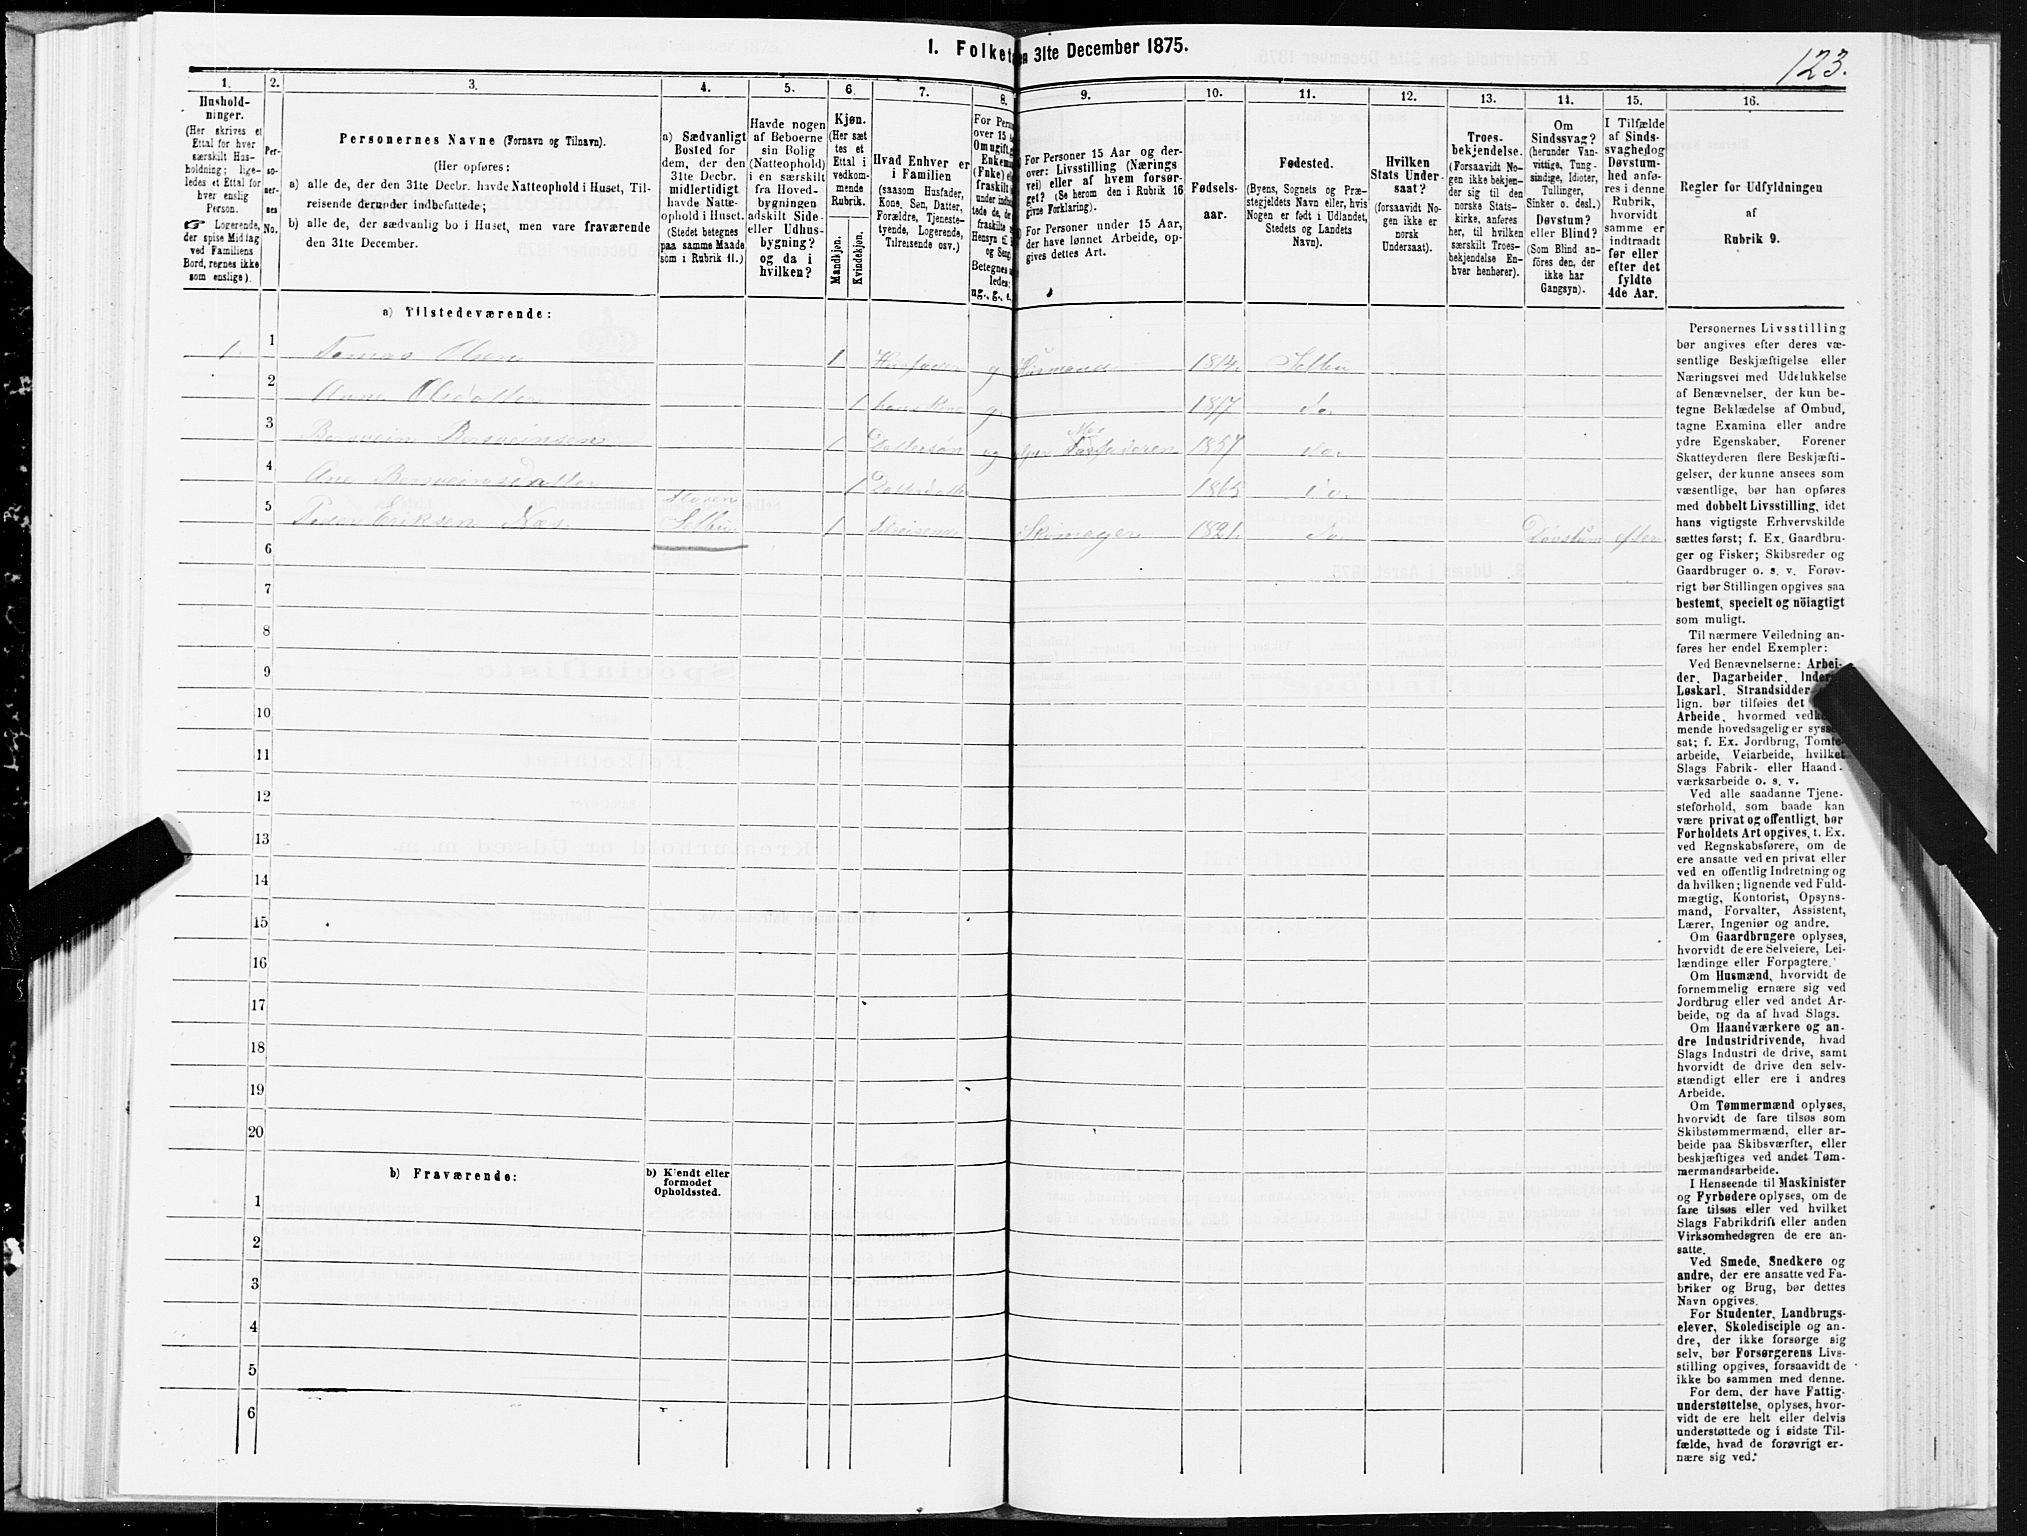 1. Folket
en 31te December 1875.
123.
1.
2.
3.
4.
5.
6.
7.
8.
9.
10.
11.
12.
13.
14.
15.
16.
Hushold-
ninger.
(Her skrives et
Ettal for hver
særskilt Hus-
holdning; lige-
ledes et Ettal for
hver enslig
Person.
Logerende,
der spise Middag
ved Familiens
Bord, regnes ikke
som enslige).
Per-
so-
ner-
nes
No.
Personernes Navne (Fornavn og Tilnavn).
(Her opføres:
a) alle de, der den 31te Decbr. havde Natteophold i Huset, Til-
reisende derunder indbefattede;
b) alle de, der sædvanlig bo i Huset, men vare fraværende
den 31te December.
a) Sædvanligt
Bosted for
dem, der den
31te Decbr.
midlertidigt
havde Natte-
ophold i Huset.
(Stedet betegnes
paa samme Maade
som i Rubrik 11.)
Havde nogen
af Beboerne
sin Bolig
(Natteophold)
i en særskilt
fra Hoved-
bygningen
adskilt Side-
eller Udhus-
bygning?
og da i
hvilken?
Kjøn.
(Her sæt
tes et
Ettal i
vedkom-
mende
Rubrik.
Mandkjøn.
Kvindekjøn.
Hvad Enhver er
i Familien
(saasom Husfader,
Kone, Søn, Datter,
Forældre, Tjeneste-
tyende, Logerende,
Tilreisende osv.)
For Pers
over 15
Om ugift,
Enkem
(Fnke)
fraskilt
under ind
tede de, d
fraskilte
Hensyn t
og Seng.
Betegnes
ledes:
ug., g., e.
For Personer 15 Aar og der-
over: Livsstilling (Nærings
vei) eller af hvem forsør-
get? (Se herom den i Rubrik 16
givne Forklaring).
For Personer under 15 Aar,
der have lønnet Arbeide, op-
gives dettes Art.
Fødsels-
aar.
Fødested.
(Byens, Sognets og Præ-
stegjeldets Navn eller, hvis
Nogen er født i Udlandet,
Stedets og Landets
Navn).
Hvilken
Stats Under-
saat?
(forsaavidt No-
gen ikke er
norsk
Undersaat).
Troes-
bekjendelse.
(Forsaavidt No-
gen ikke bekjen-
der sig til den
norske Stats-
kirke, anføres
her, til hvilken
særskilt Troes-
bekjendelse En-
hver henhører).
Om
Sindssvag?
(herunder Van-
vittige, Tung-
sindige, Idioter,
Tullinger,
Sinker o. desl.)
Døvstum?
eller Blind?
(Som Blind an-
föres den, der
ikke har
Gangsyn).
I Tilfælde
af Sinds-
svaghed og
Døvstum-
hed anfø-
res i denne
Rubrik,
hvorvidt
samme er
indtraadt
før eller
efter det
fyldte
4de Aar.
Regler for Udfyldningen
af
Rubrik 9.
a) Tilstedeværende:
1 1 Tomas Olsen 1 Husfader g Husmand 1814. Selbu
2 Ane Olsdatter 1 hans Kone g. 1817 Do.
3 Bersvein Bersveinsen 1 Dattersøn ug Morfaderen 1857 Do.
4 Ane Bersveinsdatter 1 1865 Do.
5 Peder Eriksen Næs Floren Selbu 1 Tilreisende Skomager 1821. Do. Døvstum efter
6
7
8
9
10
11
12
13
14
15
16
17
18
19
20
b) Fraværende:
b) Kjendt eller
formodet
Opholdssted.
1
2
3
4
5
6
Personernes Livsstilling
bør angives efter deres væ-
sentlige Beskjæftigelse eller
Næringsvei med Udelukkelse
af Benævnelser, der kun be-
tegne Beklædelse af Ombud,
tagne Examina eller andre
ydre Egenskaber. Forener
Skatteyderen flere Beskjæfti-
gelser, der kunne ansees som
væsentlige, bør han opføres
med dobbelt Livsstilling, idet
hans vigtigste Erhvervskilde
sættes først; f. Ex. Gaardbru-
ger og Fisker; Skibsreder og
Gaardbruger o. s. v. Forøv-
rigt bør Stillingen opgives saa
bestemt, specielt og nöiagtigt
som muligt.
Til nærmere Veiledning an-
føres her endel Exempler:
Ved Benævnelserne: Arbei-
der, Dagarbeider, Inder
Løskarl, Strandsidder
lign. bør tilføies det
Arbeide, hvormed ved
mende hovedsagelig er sys
sat; f. Ex. Jordbrug, Tomte-
arbeide, Veiarbeide, hvilket
Slags Fabrik- eller Haand-
værksarbeide o. s. v.
Ved alle saadanne Tjene-
steforhold, som baade kan
være privat og offentligt, bør
Forholdets Art opgives, t. Ex.
ved Regnskabsførere, om de
ere ansatte ved en privat eller
ved en offentlig Indretning og
da hvilken; lignende ved Fuld-
mægtig, Kontorist, Opsyns-
mand, Forvalter, Assistent,
Lærer, Ingeniør og andre.
Om Gaardbrugere oplyses,
hvorvidt de ere Selveiere, Lei-
lændinge eller Forpagtere.
Om Husmænd, hvorvidt de
fornemmelig ernære sig ved
Jordbrug eller ved andet Ar-
beide, og da af hvad Slags.
Om Haandværkere og an-
dre Industridrivende, hvad
Slags Industri de drive, samt
hvorvidt de drive den selv-
stændigt eller ere i andres
Arbeide.
Om Tømmermænd oplyses,
hvorvidt de fare tilsøs som
Skibstømmermænd, eller ar-
beide paa Skibsværfter, eller
beskjæftiges ved andet Tøm-
mermandsarbeide.
I Henseende til Maskinister
og Fyrbødere oplyses, om de
fare tilsøs eller ved hvilket
Slags Fabrikdrift eller anden
Virksomhedsgren de ere an-
satte.
Ved Smede, Snedkere og
andre, der ere ansatte ved Fa-
briker og Brug, bør dettes
Navn opgives.
For Studenter, Landbrugs-
elever, Skoledisciple og an-
dre, der ikke forsørge sig
selv, bør Forsørgerens Livs-
stilling opgives, forsaavidt de
ikke bo sammen med denne.
For dem, der have Fattig-
understøttelse, oplyses, hvor-
vidt de ere helt eller delvis
understøttede og i sidste Til-
fælde, hvad de forøvrigt er-
nære sig ved.